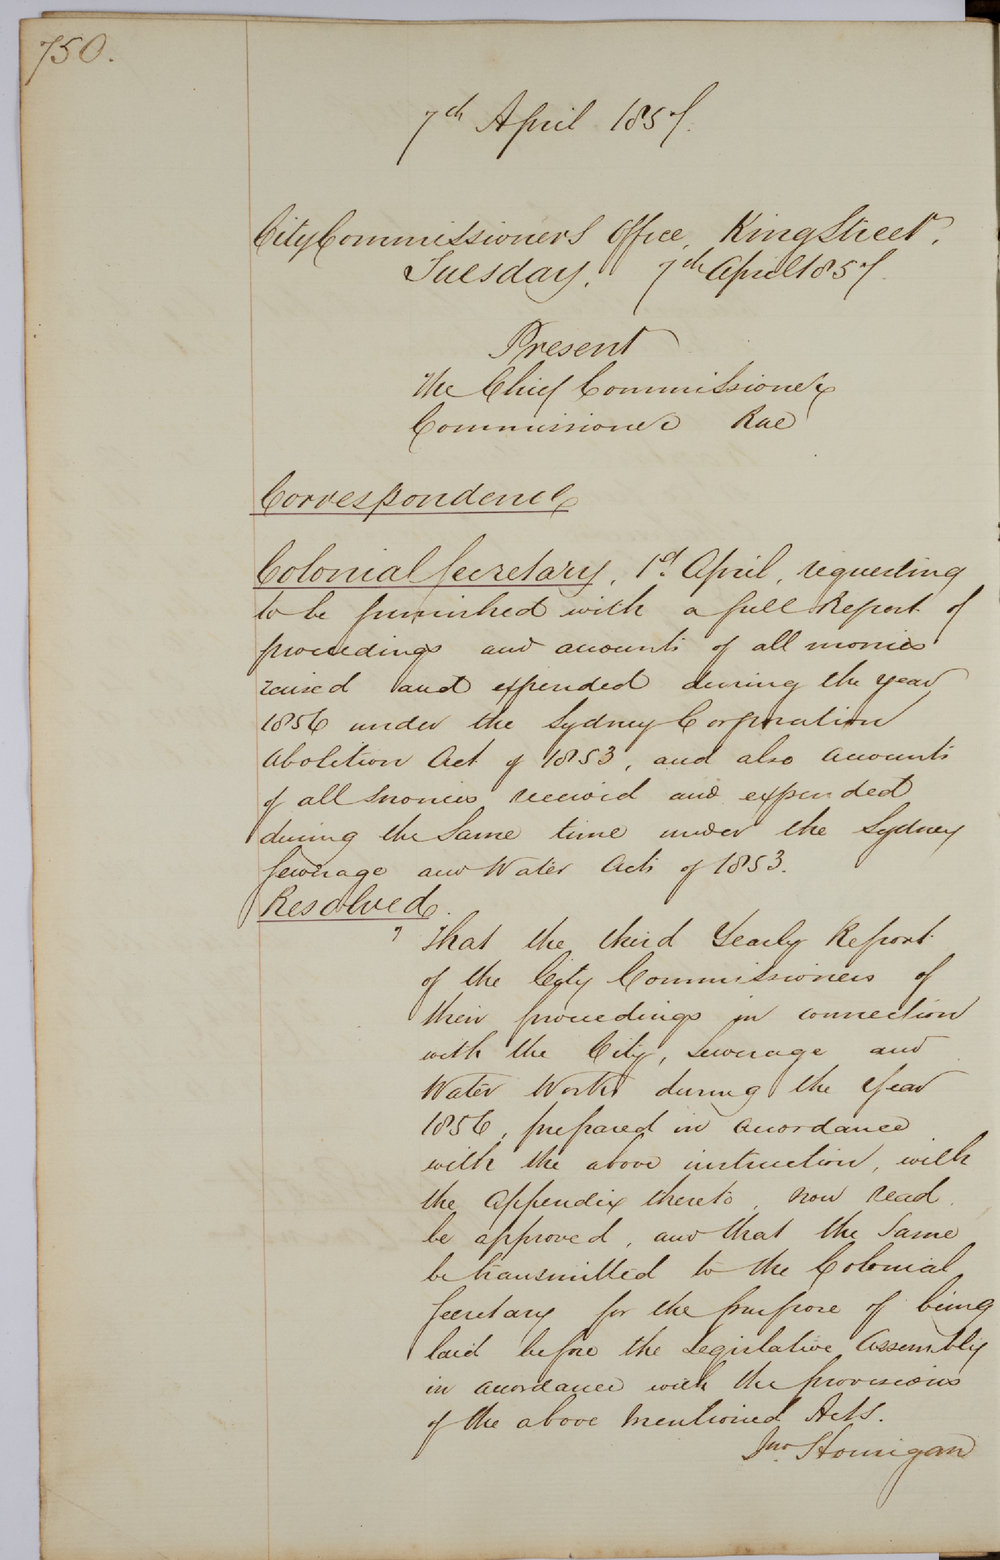 750.
7th April 1857.
City Commissioners Office, King Street,
Tuesday, 7th April 1857.
Present
The Chief Commissioner
Commissioner Rae
Correspondence
Colonial Secretary, 1st April, requesting
to be furnished with a full Report of
proceedings and accounts of all monies
raised and expended during the year
1856 under the Sydney Corporation
Abolition Act of 1853, and also accounts
of all monies received and expended
during the Same time under the Sydney
Sewerage and Water Acts of 1853.
Resolved.
" That the third Yearly Report
of the City Commissioners of
their proceedings in connection
with the City, Sewerage and
Water Works during the Year
1856, prepared in accordance
with the above instruction, with
the Appendix thereto, now read
be approved, and that the Same
be transmitted to the Colonial
Secretary for the purpose of being
laid before the Legislative Assembly
in accordance with the provisions
of the above mentioned Acts.
Jno.